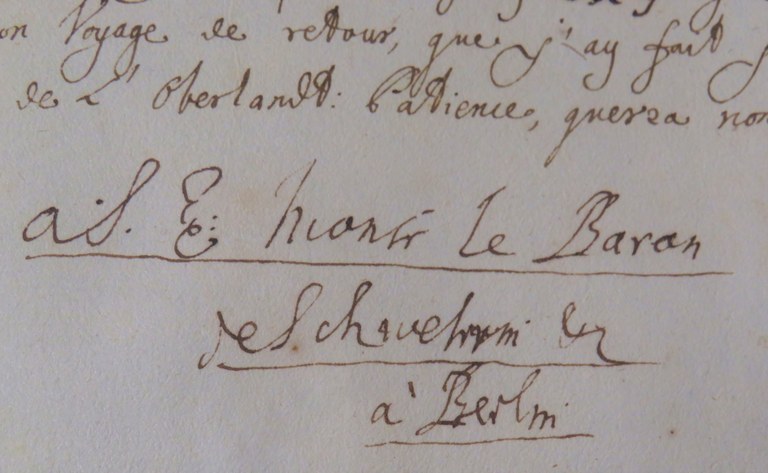 on Voyage de retour, que j'ay fait
de L'Oberlandt: Patience, guerra non
a S. E: Monsr le Baron
de Schwerin &c
à Berlin